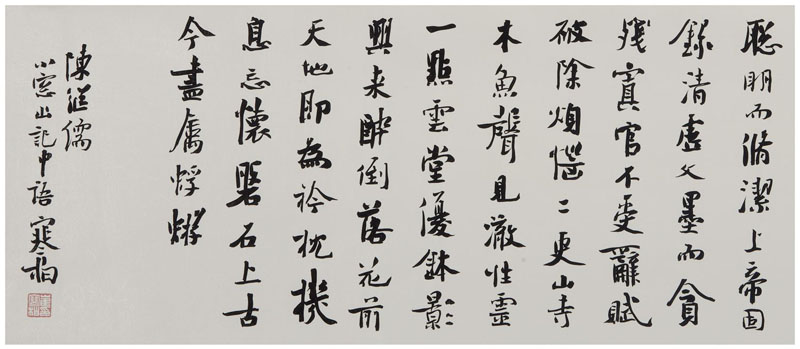 聰明而脩潔上帝固
錄清虛文墨而貪
殘冥官不受辭賦
破除煩惱二更山寺
木魚聲見澈性靈
一點雲堂優鉢影
興來醉倒落花前
天地即為衿枕機
息忘懷磐石上古
今盡屬蜉蝣
陳繼儒
小窓幽記中語 寒